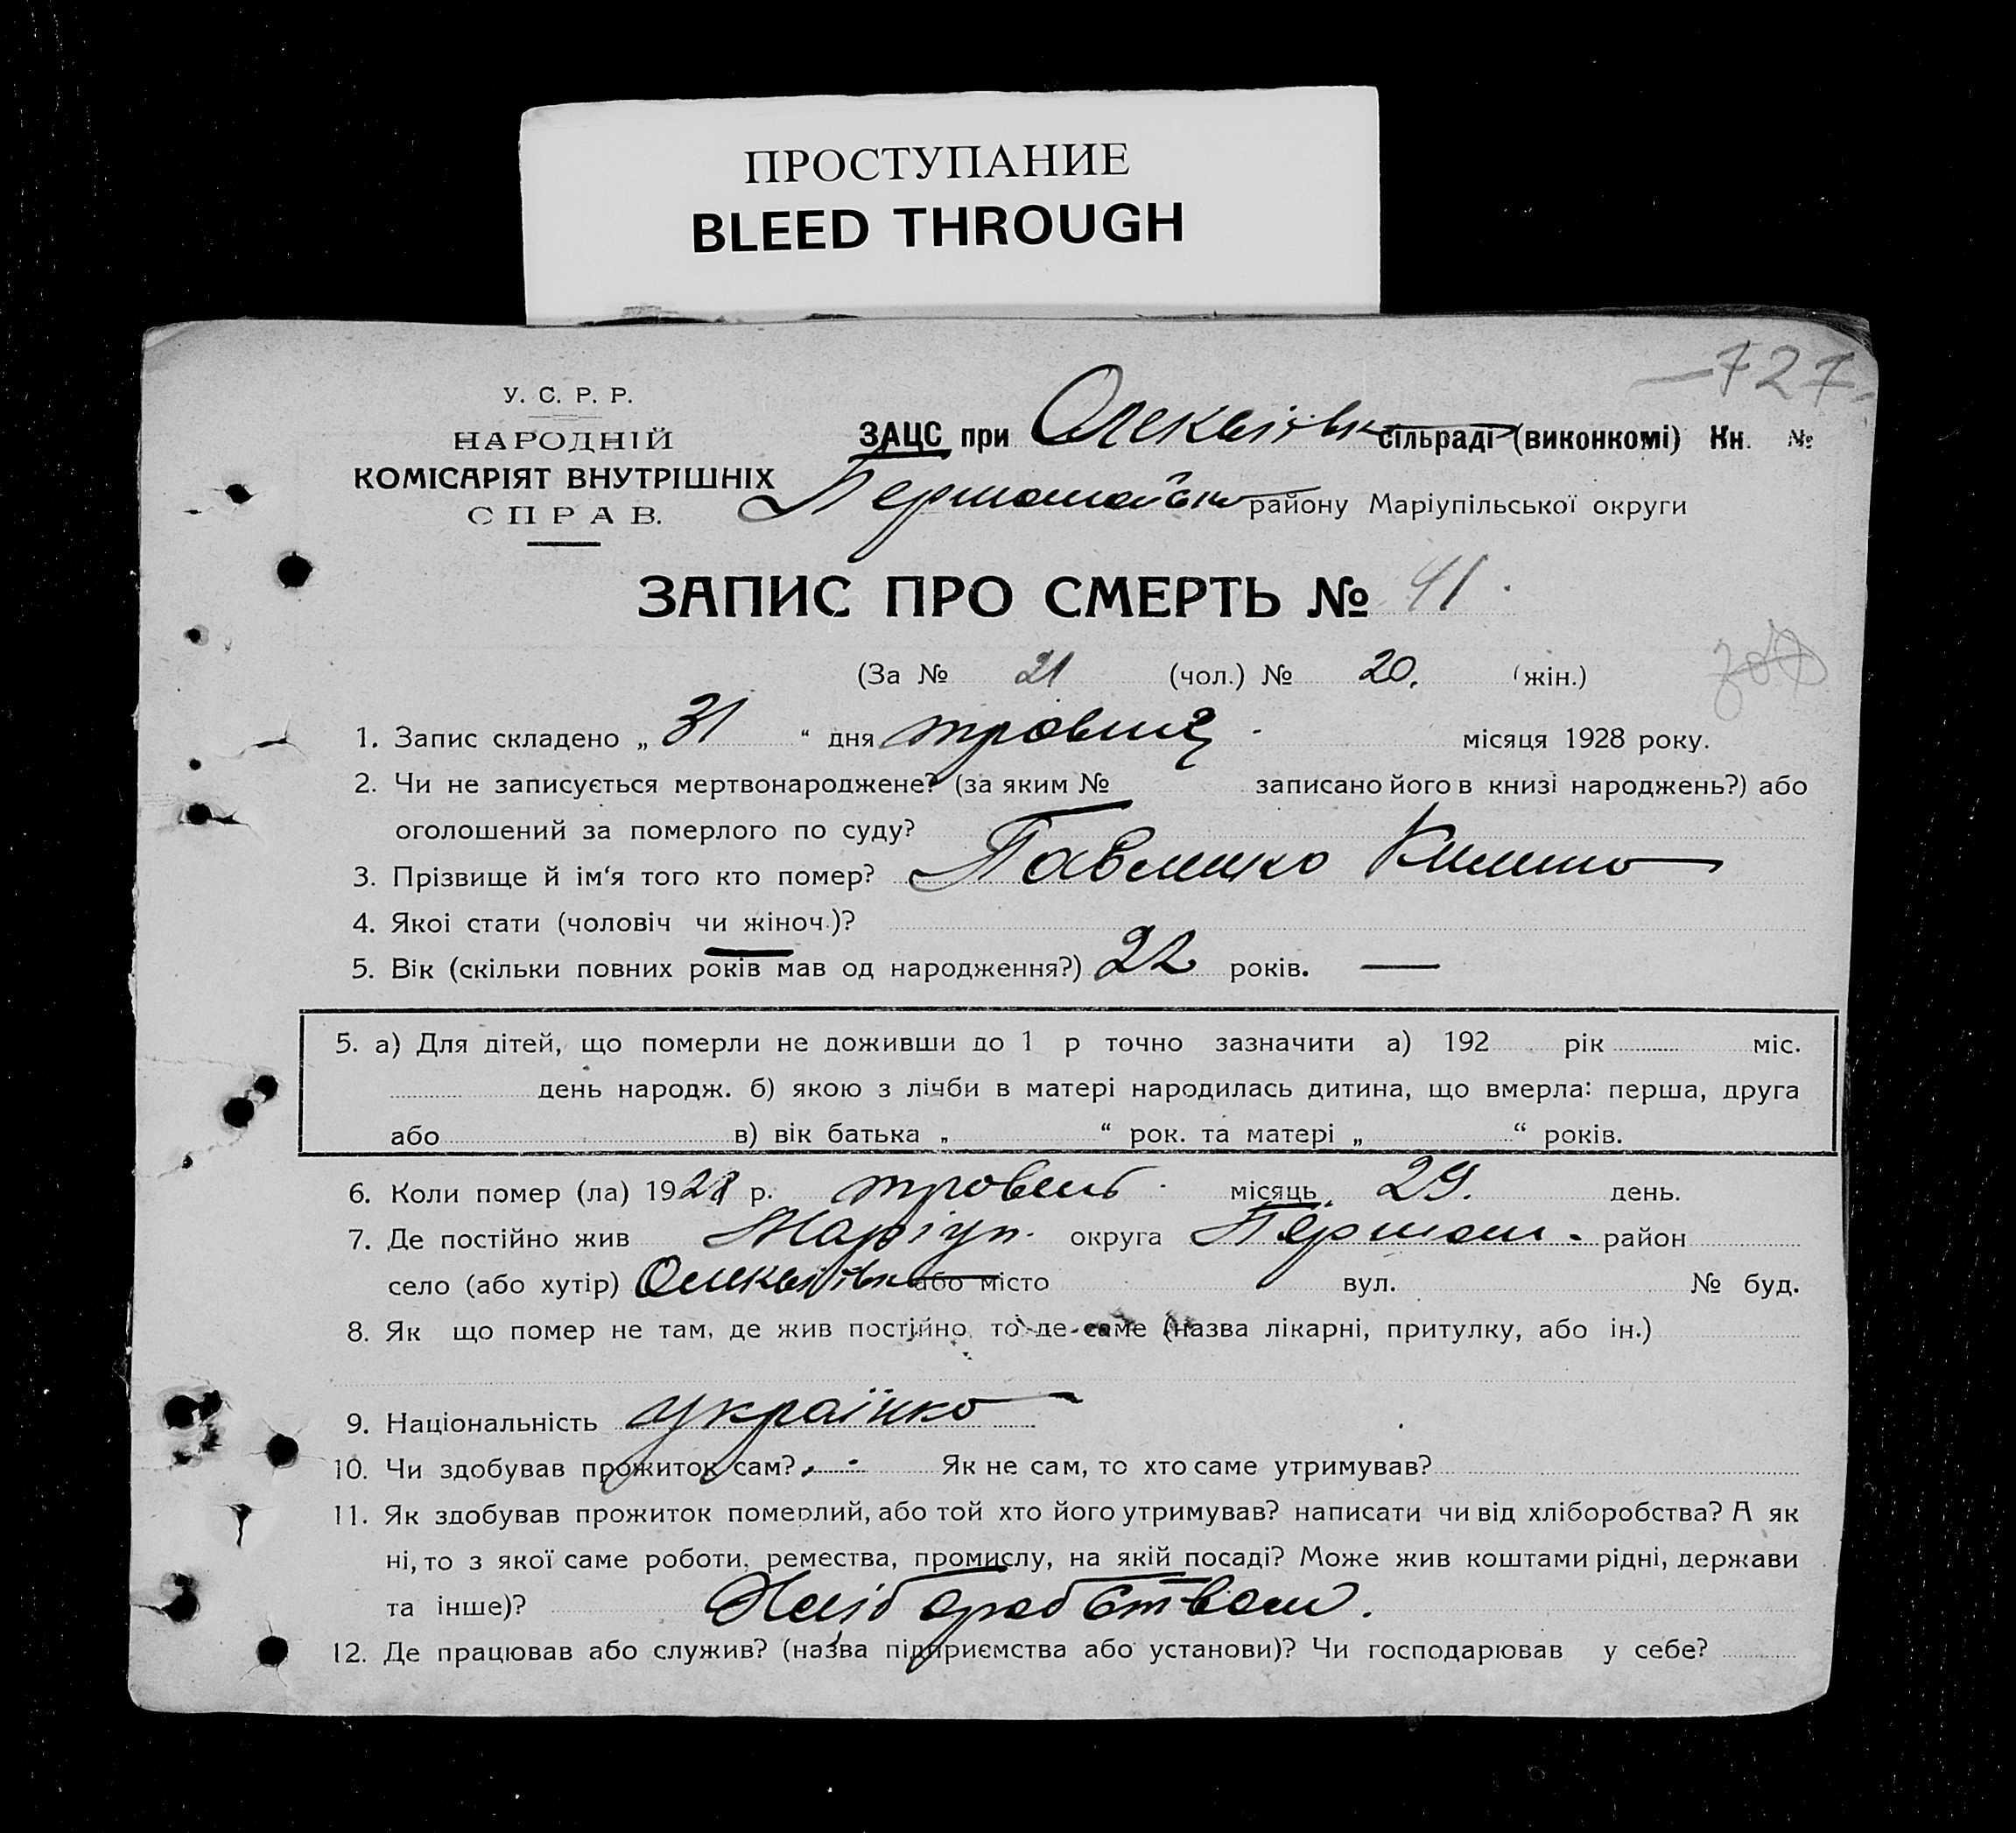 ПРОСТУПАНИЕ
BLEED THROUGH
727
У. С. Р. Р.
НАРОДНІЙ
КОМІСАРІЯТ ВНУТРІШНІХ
СПРАВ.
ЗАЦС при сільраді (виконкомі) Кн. №
Першомайськ району Маріупільської округи
ЗАПИС ПРО СМЕРТЬ № 41.
(За № 21 (чол.) № 20. (жін.)
1. Запис складено „ 31 “ дня травня місяця 1928 року.
2. Чи не записується мертвонароджене? (за яким № записано його в книзі народжень?) або
оголошений за померлого по суду?
3. Прізвище й ім‘я того кто помер?
4. Якоі стати (чоловіч чи жіноч.)?
5. Вік (скільки повних років мав од народження?) 22 років. —
5. а) Для дітей, що померли не доживши до 1 р точно зазначити а) 192 рік міс.
день народж. б) якою з лічби в матері народилась дитина, що вмерла: перша, друга
або в) вік батька „ “ рок. та матері „ “ років.
6. Коли помер (ла) 1928 р. травень місяць 29. день.
7. Де постійно жив Маріуп. округа Першом. район
село (або хутір) або місто вул. № буд.
8. Як що помер не там, де жив постійно, то де саме (назва лікарні, притулку, або ін.)
9. Національність українка
10. Чи здобував прожиток сам? Як не сам, то хто саме утримував?
11. Як здобував прожиток померлий, або той хто його утримував? написати чи від хліборобства? А як
ні, то з якої саме роботи, ремества, промислу, на якій посаді? Може жив коштами рідні, держави
та інше)? Хліборобством.
12. Де працював або служив? (назва підприємства або установи)? Чи господарював у себе?